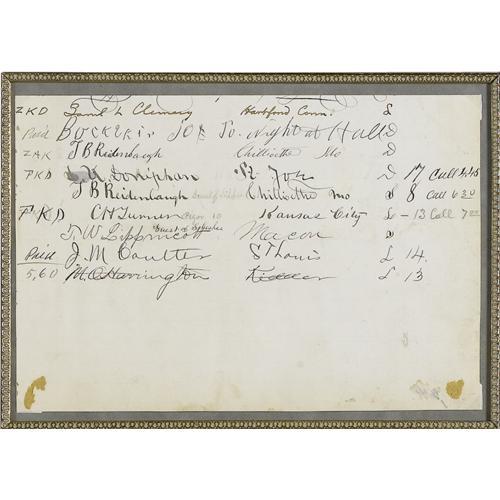 ZKD Saml L Clemens Hartford Conn. L
Paid Buckskin Joe To. Night at Hall D
ZAK J B Reidenbaugh Chillicothe Mo D
PKD Doniphan St Joe D 17 Call 4.45
J B Reidenbaugh Chillicothe Mo S 8 Call 6 30
PKD C H Turner Kansas City L - 13 Call 7 00
T. W Lippincott Guest of Macon
Paid J. M Coulter St Louis L 14.
5,60 M. C Harrington Kidder L 13